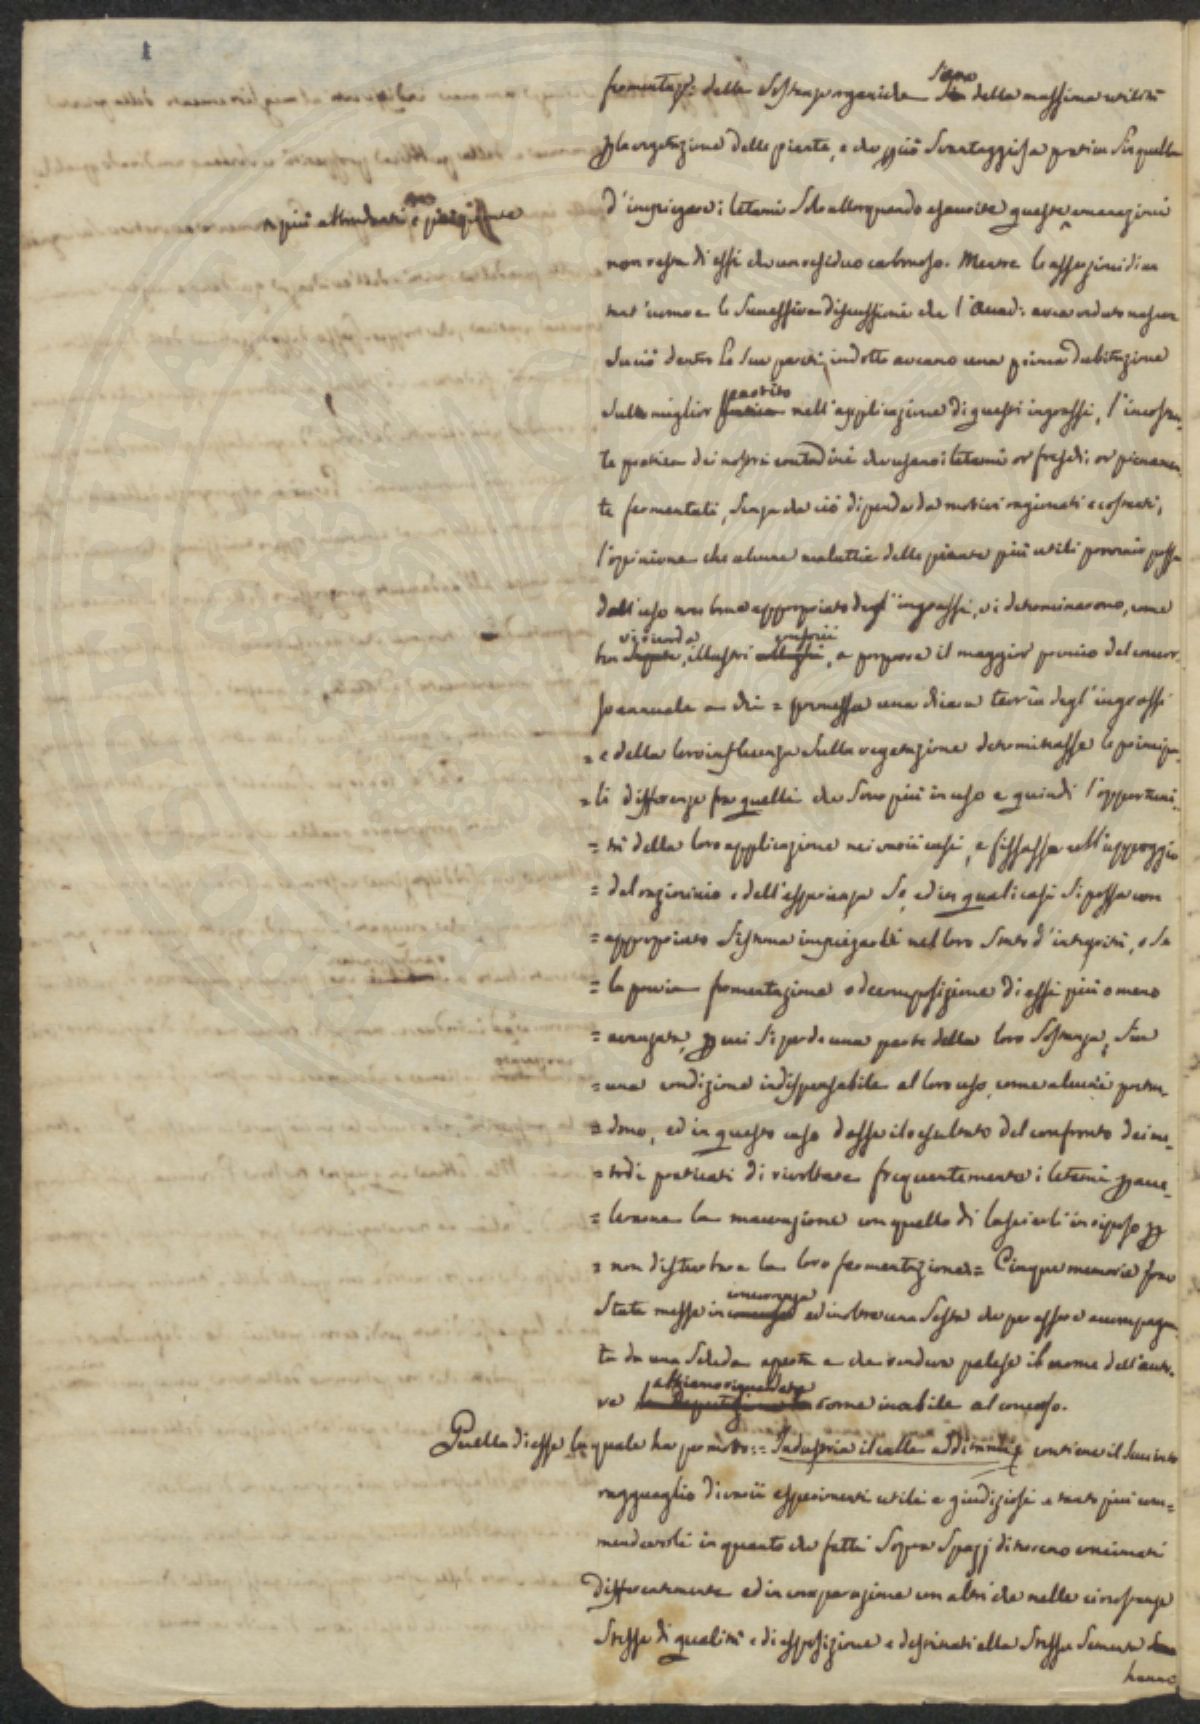 1
siano
fermentaz: delle Sostanze organiche sia della massima utilità
p la vegetazione delle piante, e che p ciò svantaggiosa pratica sia quella
più abbondanti e
d'impiegare i letami solo allorquando esaurite queste emanazioni
non resta di essi che un residuo carbonoso. Mentre le asserzioni di un
tant'uomo e le successive discussioni che l'Accad: avea veduto nascere
su ciò dentro le sue pareti, indotto aveano una prima dubitazione
partito
sulla miglior pratica nell'applicazione di questi ingrassi, l'incostan-
te pratica dei nostri contadini che usano i letami or freschi: or pienamen-
te fermentati, senza che ciò dipenda da motivi ragionati e costanti;
l'opinione che alcune malattie delle piante più utili provenir possa
dall'uso non bene appropriato degl'ingrassi, vi determinarono, come
vi ricorda
illustri, a proporre il maggior premio del concor-
so annuale a chi = premessa una chiara teoria degl'ingrassi
= e della loro influenza sulla vegetazione determinasse le principa-
= li differenze fra quelli che sono più in uso e quindi l'opportuni-
= tà della loro applicazione nei varii casi, e fissasse coll'appoggio
= del raziocinio e dell'esperienza se, ed in quali casi si possa con
= appropriato sistema impiegarli nel loro stato d'integrità, o se
= la previa fermentazione o decomposizione di essi più o meno
= avanzata, p cui si perde una parte della loro sostanza, sia
= una condizione indispensabile al loro uso, come alcuni preten-
= dono, ed in questo caso desse il resultato del confronto dei me-
= todi praticati di rivoltare frequentemente i letami p acce-
= lerarne la macerazione con quello di lasciarli in riposo p
= non disturbare la loro fermentazione = Cinque memorie sono
concorrenza
state messe in ed inoltre una sesta che per essere accompagna
ta da una scheda aperta e che rendeva palese il nome dell'auto-
abbiamo riguardata
re la Deputazione la come inabile al concorso.
Quella di esse la quale ha per motto: = Industria il calle additami, contiene il succinto
ragguaglio di varii esperimenti utili e giudiziosi e tanto più com-
mendevoli in quanto che fatti sopra spazj di terreno concimati
differentemente ed in comparazione con altri che nelle circostanze
stesse di qualità e di esposizione e destinati alla stessa sementa
hanno